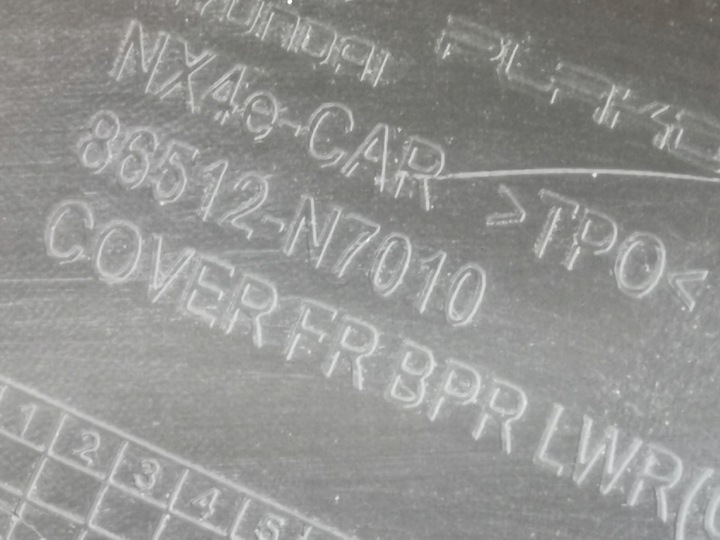 HYUNDAI
NX4e-CAR
86512-N7010
>TPO<
COVER FR BPR LWR(
1 2 3 4 5